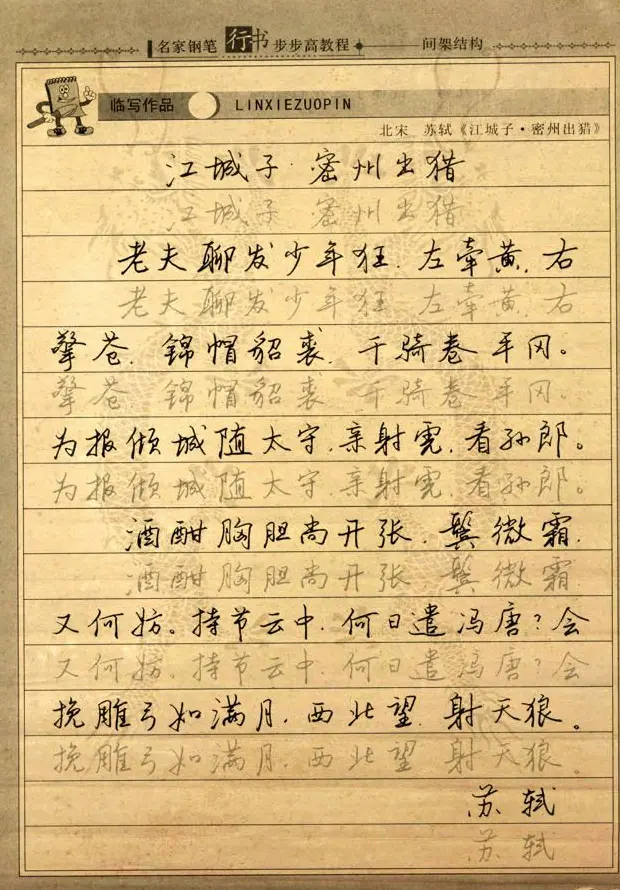 名家钢笔行书步步高教程 间架结构
临写作品 LINXIEZUOPIN
北宋 苏轼《江城子·密州出猎》
江城子·密州出猎
江城子 密州出猎
老夫聊发少年狂,左牵黄,右
老夫聊发少年狂 左牵黄,右
擎苍,锦帽貂裘,千骑卷平冈。
擎苍 锦帽貂裘 千骑卷平冈。
为报倾城随太守,亲射虎,看孙郎。
为报倾城随太守,亲射虎,看孙郎。
酒酣胸胆尚开张,鬓微霜,
酒酣胸胆尚开张 鬓微霜
又何妨。持节云中,何日遣冯唐?会
又何妨。持节云中,何日遣冯唐?会
挽雕弓如满月,西北望,射天狼。
挽雕弓如满月,西北望 射天狼。
苏轼
苏轼